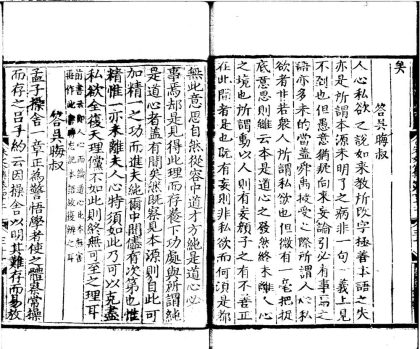 矣
答吳晦叔
人心私欲之說如來教所改字極善本語之失
亦是所謂本源未明了之病非一句一義上見
不到也但愚意猶疑向來妄論引必有事焉之
語亦多未的當蓋舜禹授受之際所謂人心私
欲者非若衆人所謂私欲也但微有一毫把捉
底意思則雖云本是道心之發然終未離人心
之境也所謂動以人則有妄顏子之有不善正
在此間者是也既有妄則非私欲而何須是都
無此意思自然從容中道才方純是道心必
事焉却是見得此理而存養下功處與所謂純
是道心者蓋有間矣然既察見本源則自此可
加精一之功而進夫純耳中間儘有次第也惟
精惟一亦未離夫人心特須如此乃可以克盡
私欲全復天理儻不如此則終無可至之理耳
答吳晦叔
孟子操舍一章正爲警悟學者使之體察常操
而存之呂子約云因操舍以明其難存而易放